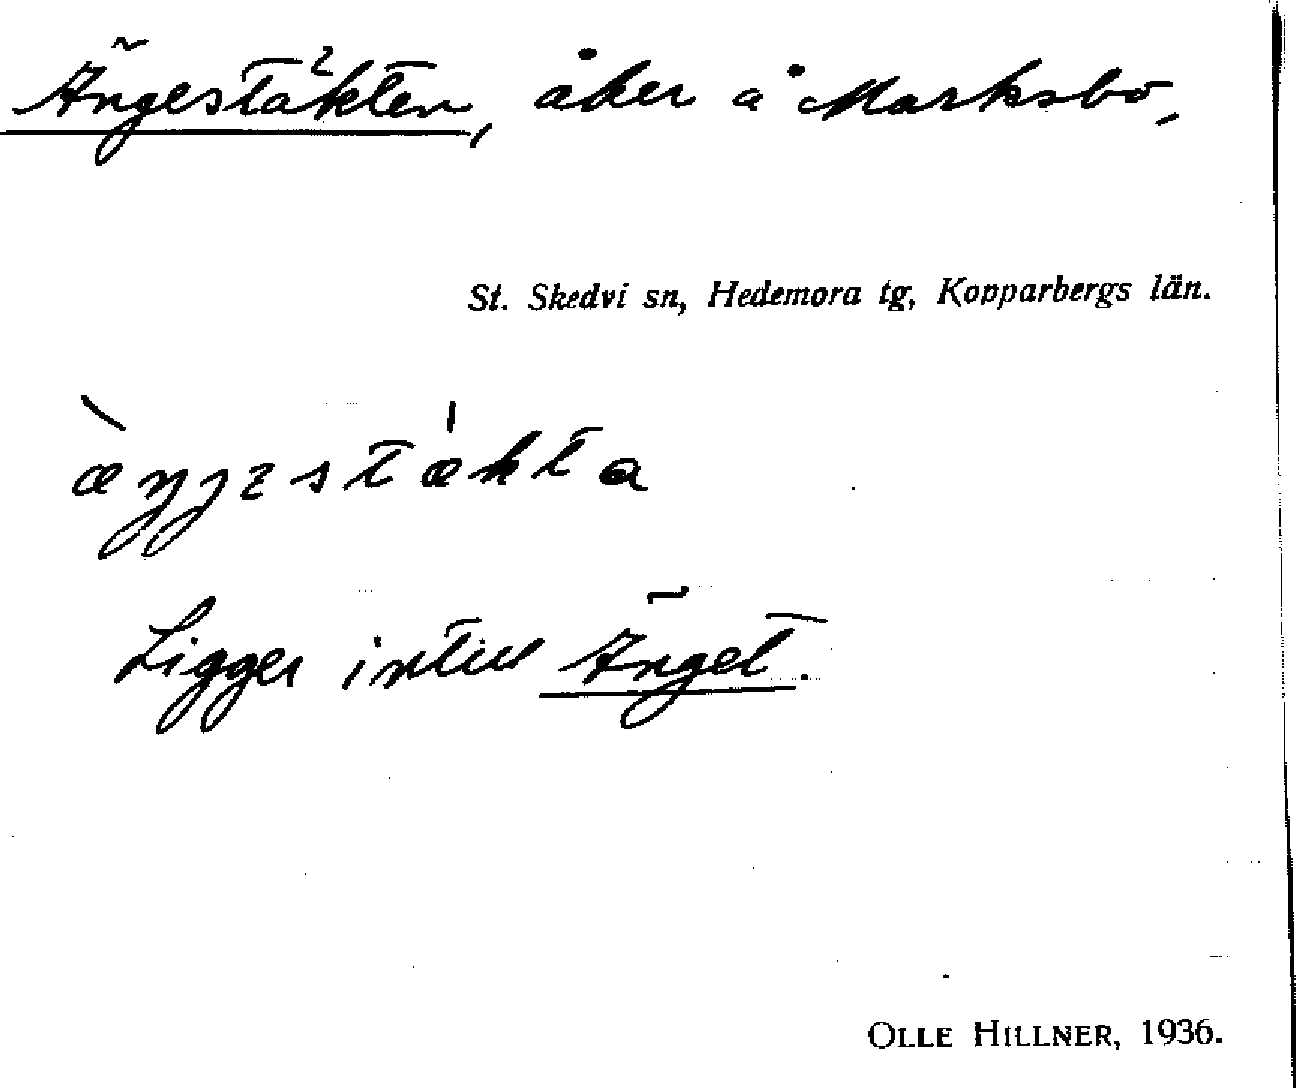 Ängestäkten, åker å Marksbo,
St. Skedvi sn, Hedemora tg, Kopparbergs län.
Ligger intill Änget.
OLLE HILLNER, 1936.